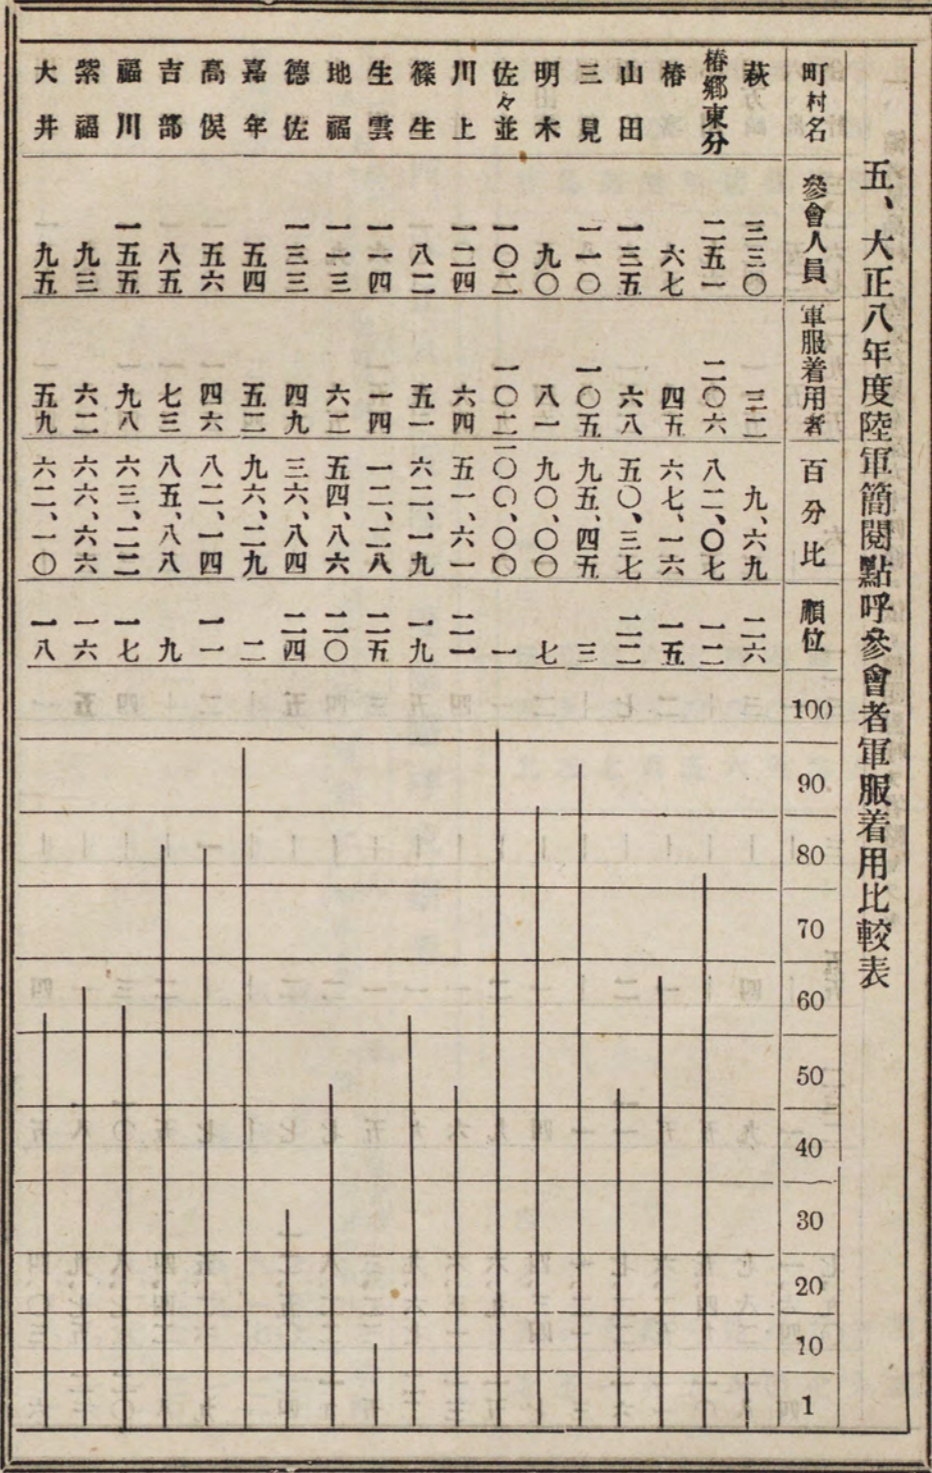 五、大正八年度陸軍簡閱點呼參會者軍服着用比較表
町村名 參會人員 軍服着用者 百分比 順位 100 90 80 70 60 50 40 30 20 10 1
萩 三三〇 三二 九、六九 二六
椿鄉東分 二五一 二〇六 八二、〇七 一二
椿 六七 四五 六七、一六 一五
山田 一三五 六八 五〇、三七 二二
三見 一一〇 一〇五 九五、四五 三
明木 九〇 八一 九〇、〇〇 七
佐々並 一〇二 一〇二 一〇〇、〇〇 一
川上 一二四 六四 五一、六一 二一
篠生 八二 五一 六二、一九 一九
生雲 一一四 一四 一二、二八 二五
地福 一一三 六二 五四、八六 二〇
德佐 一三三 四九 三六、八四 二四
嘉年 五四 五二 九六、二九 二
高俣 五六 四六 八二、一四 一一
吉部 八五 七三 八五、八八 九
福川 一五五 九八 六三、二二 一七
紫福 九三 六二 六六、六六 一六
大井 九五 五九 六二、一〇 一八